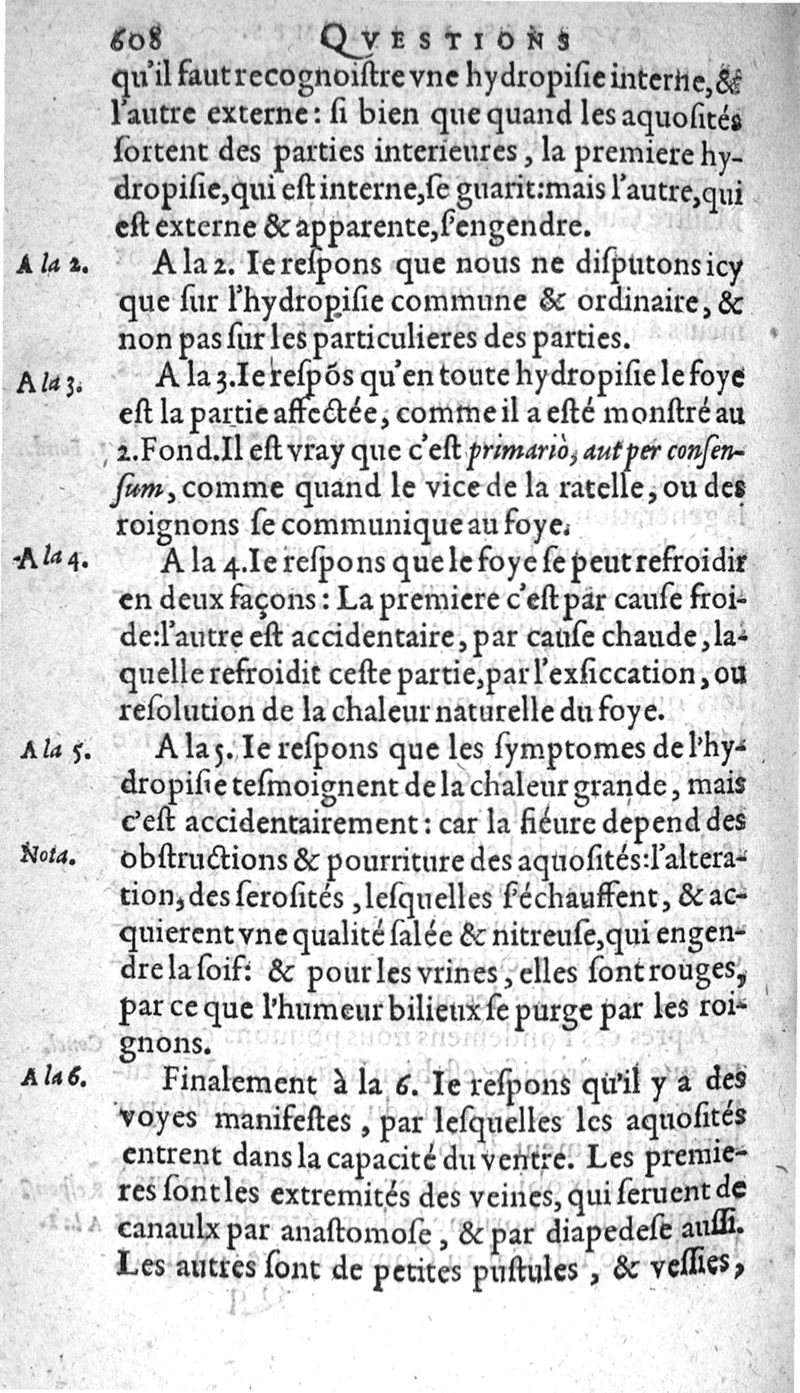 608 QVESTIONS
qu'il faut recognoiſtre vne hydropiſie interne, &
l'autre externe: ſi bien que quand les aquoſités
ſortent des parties interieures, la premiere hy-
dropiſie, qui eſt interne, ſe guarit: mais l'autre, qui
eſt externe & apparente, ſ'engendre.
A la 2. A la 2. Ie reſpons que nous ne diſputons icy
que ſur l'hydropiſie commune & ordinaire, &
non pas ſur les particulieres des parties.
A la 3. A la 3. Ie reſpõs qu'en toute hydropiſie le foye
eſt la partie affectée, comme il a eſté monſtré au
2. Fond. Il eſt vray que c'eſt primariò, aut per conſen-
ſum, comme quand le vice de la ratelle, ou des
roignons ſe communique au foye.
A la 4. A la 4. Ie reſpons que le foye ſe peut refroidir
en deux façons: La premiere c'eſt par cauſe froi-
de: l'autre eſt accidentaire, par cauſe chaude, la-
quelle refroidit ceſte partie, par l'exſiccation, ou
reſolution de la chaleur naturelle du foye.
A la 5. A la 5. Ie reſpons que les ſymptomes de l'hy-
dropiſie teſmoignent de la chaleur grande, mais
c'eſt accidentairement: car la fiéure depend des
Nota. obſtructions & pourriture des aquoſités: l'altera-
tion, des ſeroſités, leſquelles ſ'échauffent, & ac-
quierent vne qualité ſalée & nitreuſe, qui engen-
dre la ſoif: & pour les vrines, elles ſont rouges,
par ce que l'humeur bilieux ſe purge par les roi-
gnons.
A la 6. Finalement à la 6. Ie reſpons qu'il y a des
voyes manifeſtes, par leſquelles les aquoſités
entrent dans la capacité du ventre. Les premie-
res ſont les extremités des veines, qui ſeruent de
canaulx par anaſtomoſe, & par diapedeſe auſſi.
Les autres ſont de petites puſtules, & veſſies,